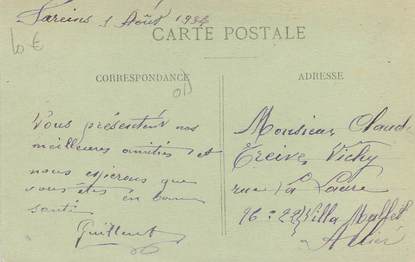 Sareins 1 Août 1934
10 €
CARTE POSTALE
CORRESPONDANCE
ADRESSE
Vous présentent nos
meilleures amitiés et
nous espérons que
vous êtes en bonne
santé
Guillent
Monsieur Claud
Treive Vichy
rue La
16 = 22 Villa
Allier